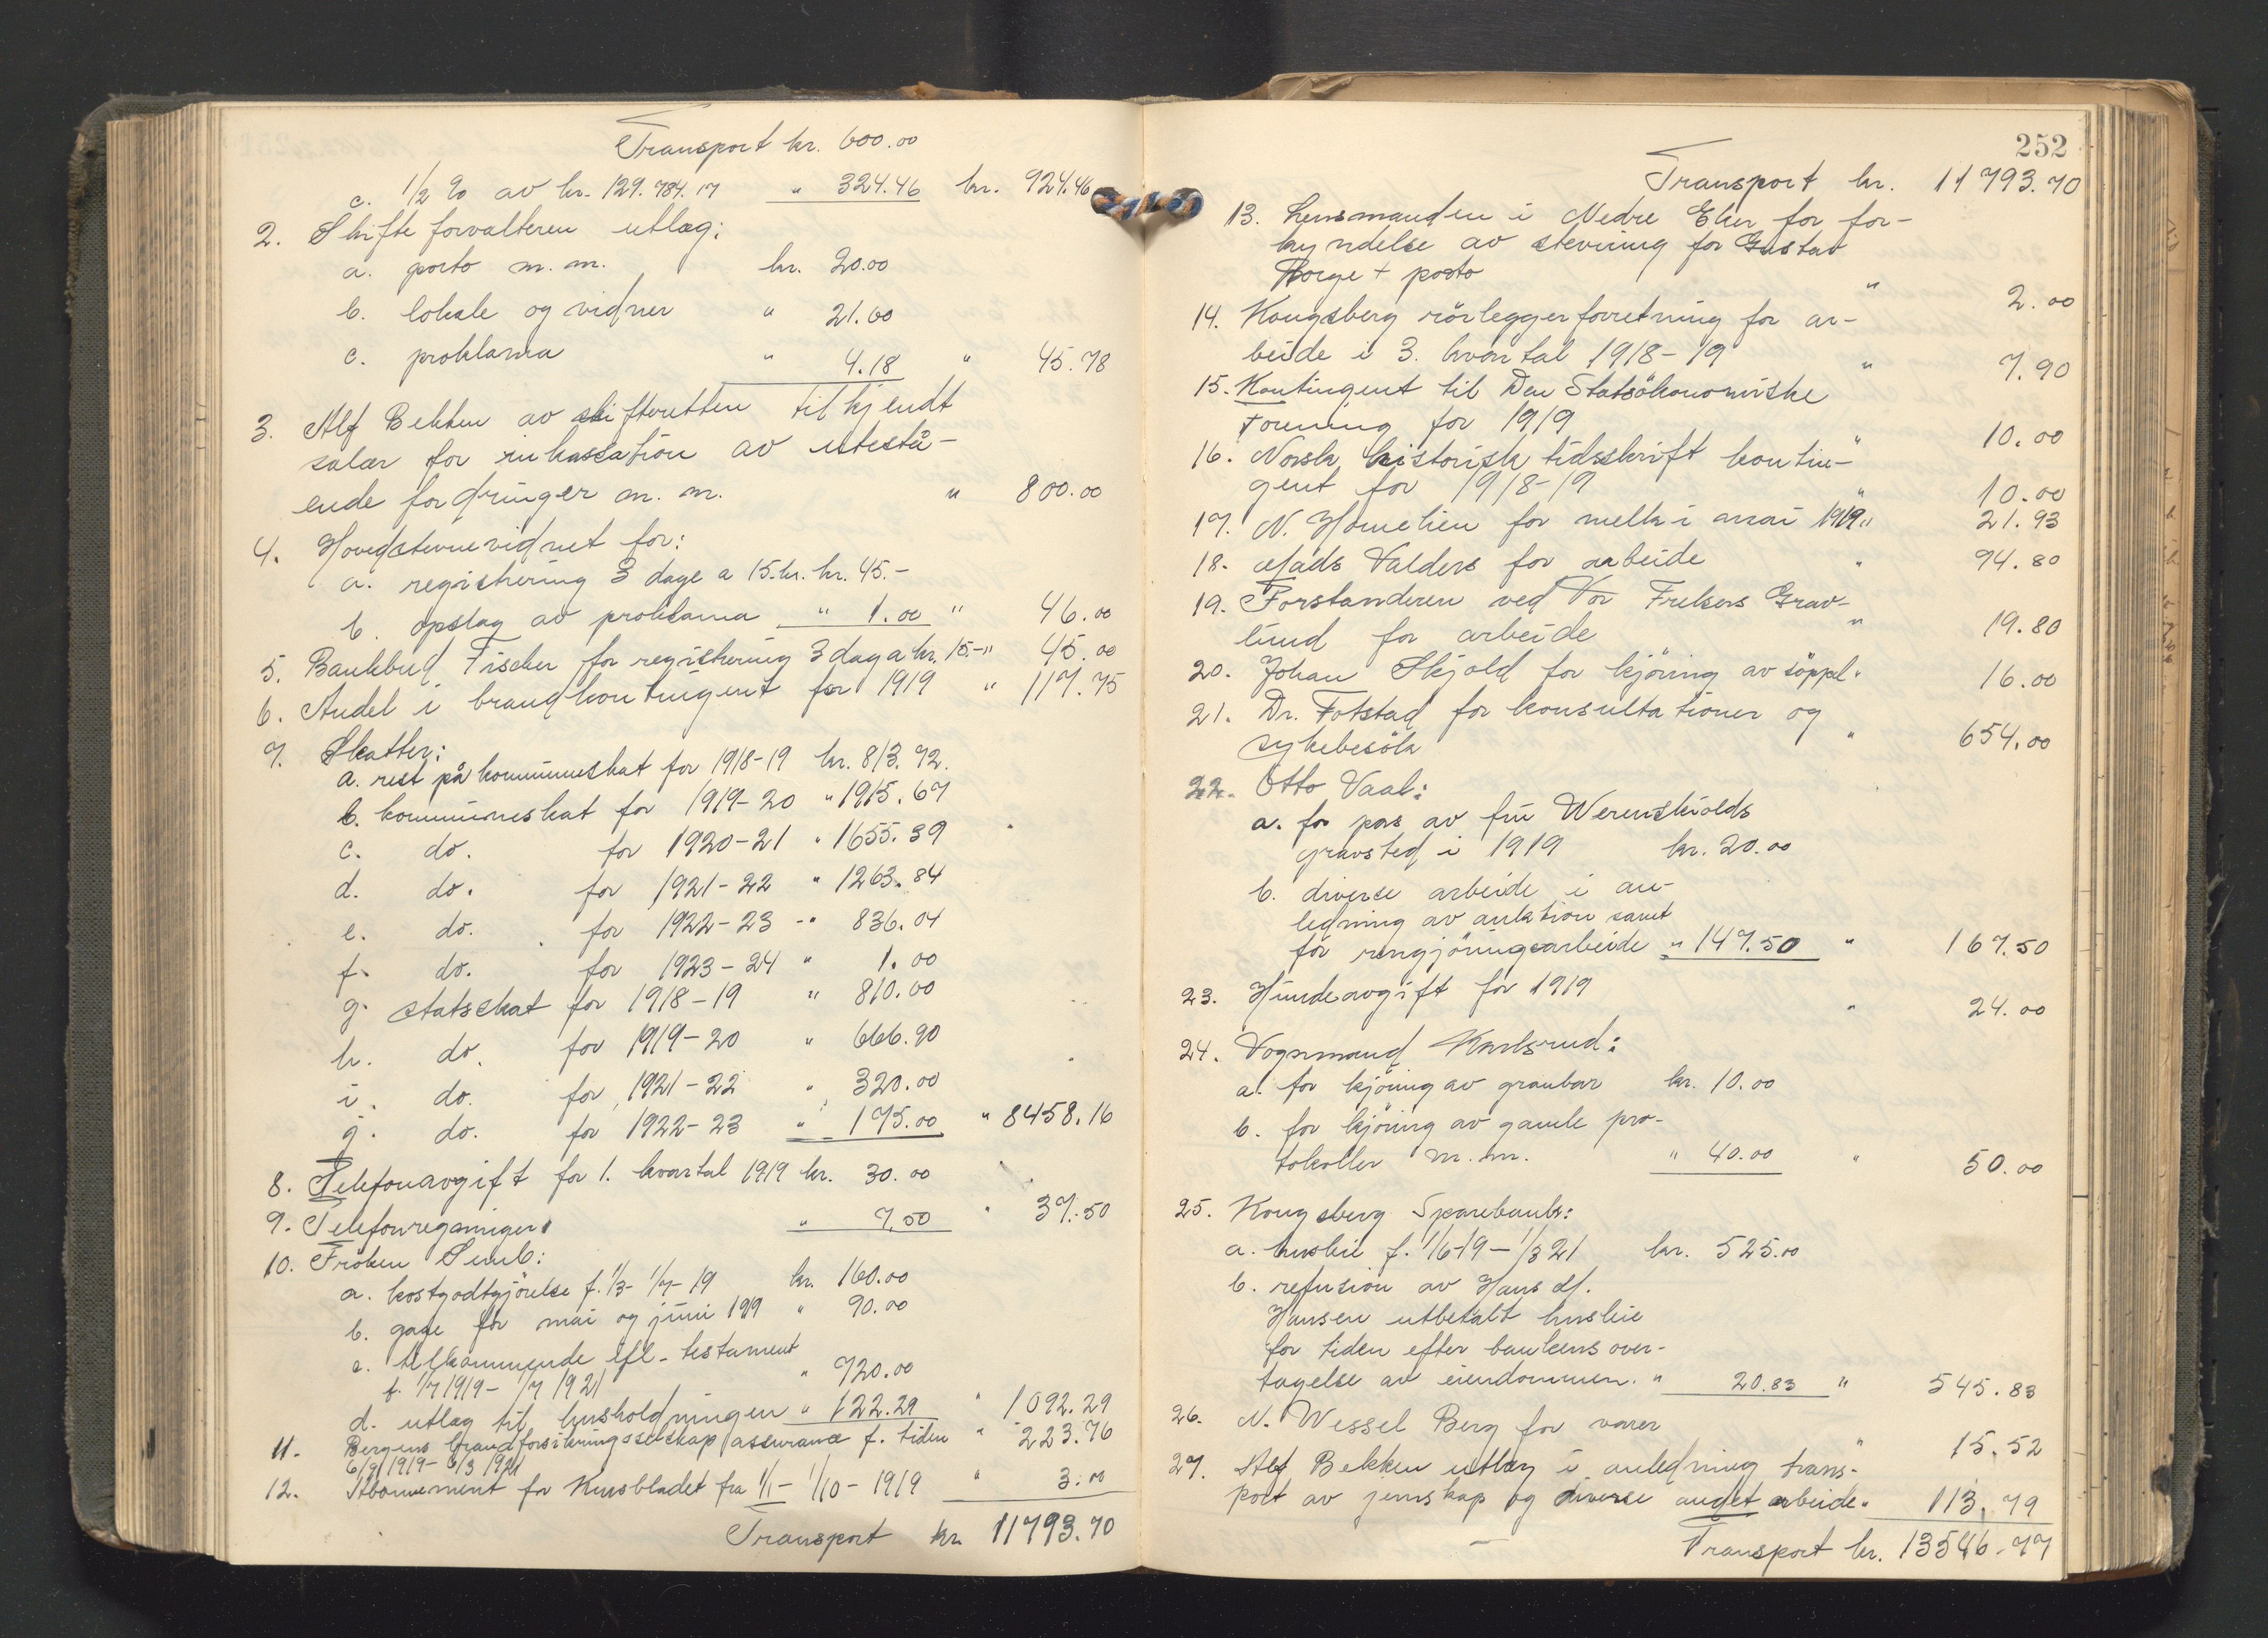 Transport kr. 600.00
c. 1/2 % av kr. 129.784.17 " 324.46 kr. 924.46
2. Skifteforvalteren utlæg:
a. porto m.m. kr. 20.00
b. lokale og vidner " 21.60
c. proklama " 4.18 " 45.78
3. Alf Bekken av skifteretten tilkjendt
salær for inkassation av utestå-
ende fordringer m.m. " 800.00
4. Hovedstevnevidnet for:
a. registrering 3 dage a 15.kr. kr. 45.-
b. opslag av proklama " 1.00 " 46.00
5. Bankbud Fischer for registrering 3 dag a kr. 15.- " 45.00
6. Andel i brandkontingent for 1919 " 117.75
7. Skatter:
a. rest på kommuneskat for 1918-19 kr. 813.72.
b. kommuneskat for 1919-20 " 1915.67
c. do. for 1920-21 " 1655.39
d. do. for 1921-22 " 1263.84
e. do. for 1922-23 " 836.04
f. do. for 1923-24 " 1.00
g. statsskat for 1918-19 " 810.00
h. do. for 1919-20 " 666.90
i. do. for 1921-22 " 320.00
j. do. for 1922-23 " 175.00 " 8458.16
8. Telefonavgift for 1. kvartal 1919 kr. 30.00
9. Telefonregninger " 7.50 " 37.50
10. Fröken Semb:
a. kostgodtgjörelse f. 1/3- 1/7- 19 kr. 160.00
b. gage for mai og juni 1919 " 90.00
c. tilkommende efl. testament
f. 1/7 1919- 1/7 1921 " 720.00
d. utlæg til husholdningen " 122.29 " 1092.29
11. Bergens brandforsikringsselskap assurance f. tiden " 223.76
6/9 1919- 6/3 1921
12. Abonnement for Kunsbladet fra 1/1- 1/10- 1919 " 3.00
Transport kr. 11793.70
252
Transport kr. 11793.70
13. Lensmanden i Nedre Eker for for-
kyndelse av stevning for Gustav
Borge + porto " 2.00
14. Kongsberg rörleggerforretning for ar-
beide i 3. kvartal 1918-19 " 7.90
15. Kontingent til Den Statsökonomiske
Forening for 1919 " 10.00
16. Norsk historisk tidsskrift kontin-
gent for 1918-19 " 10.00
17. N. Homelien for melk i mai 1919 " 21.93
18. Mads Valders for arbeide " 94.80
19. Forstanderen ved Vor Frelsers Grav-
lund for arbeide " 19.80
20. Johan Skjold for kjöring av söppel " 16.00
21. Dr. Fotstad for konsultationer og
sykebesök " 654.00
22. Otto Vaal:
a. for pas av fru Werenskiolds
gravsted i 1919 kr. 20.00
b. diverse arbeide i an-
ledning av auktion samt
for rengjöringsarbeide " 147.50 " 167.50
23. Hundeavgift for 1919 " 24.00
24. Vognmand Karlsrud:
a. for kjöring av granbar kr. 10.00
b. for kjöring av gamle pro-
tokoller m.m. " 40.00 " 50.00
25. Kongsberg Sparebank:
a. husleie f. 1/6-19 - 1/3 21 kr. 525.00
b. refusion av Hans M.
Hansen utbetalt husleie
for tiden efter bankens over-
tagelse av eiendommen. " 20.83 " 545.83
26. N. Wessel Berg for varer " 15.52
27. Alf Bekken utlæg i anledning trans-
port av jernskap og diverse andet arbeide " 113.79
Transport kr. 13546.77